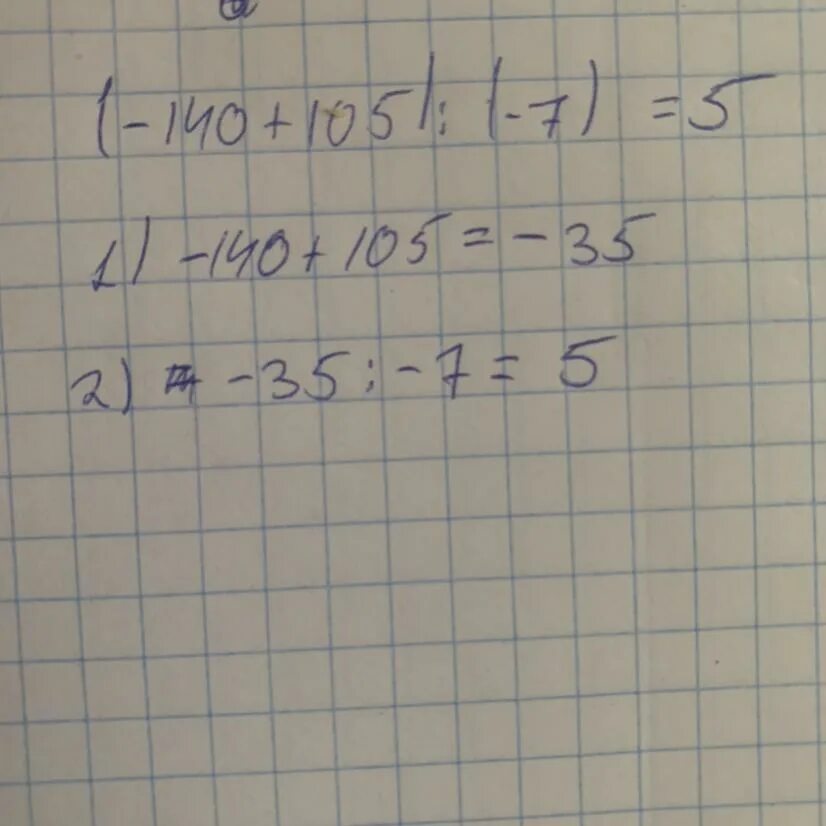 (-140+105):(-7) =5
1) -140+105=-35
2) -35:-7=5